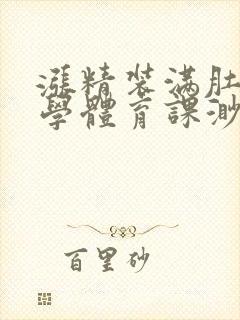 漲精裝滿肚
學體育課渺
百里砂